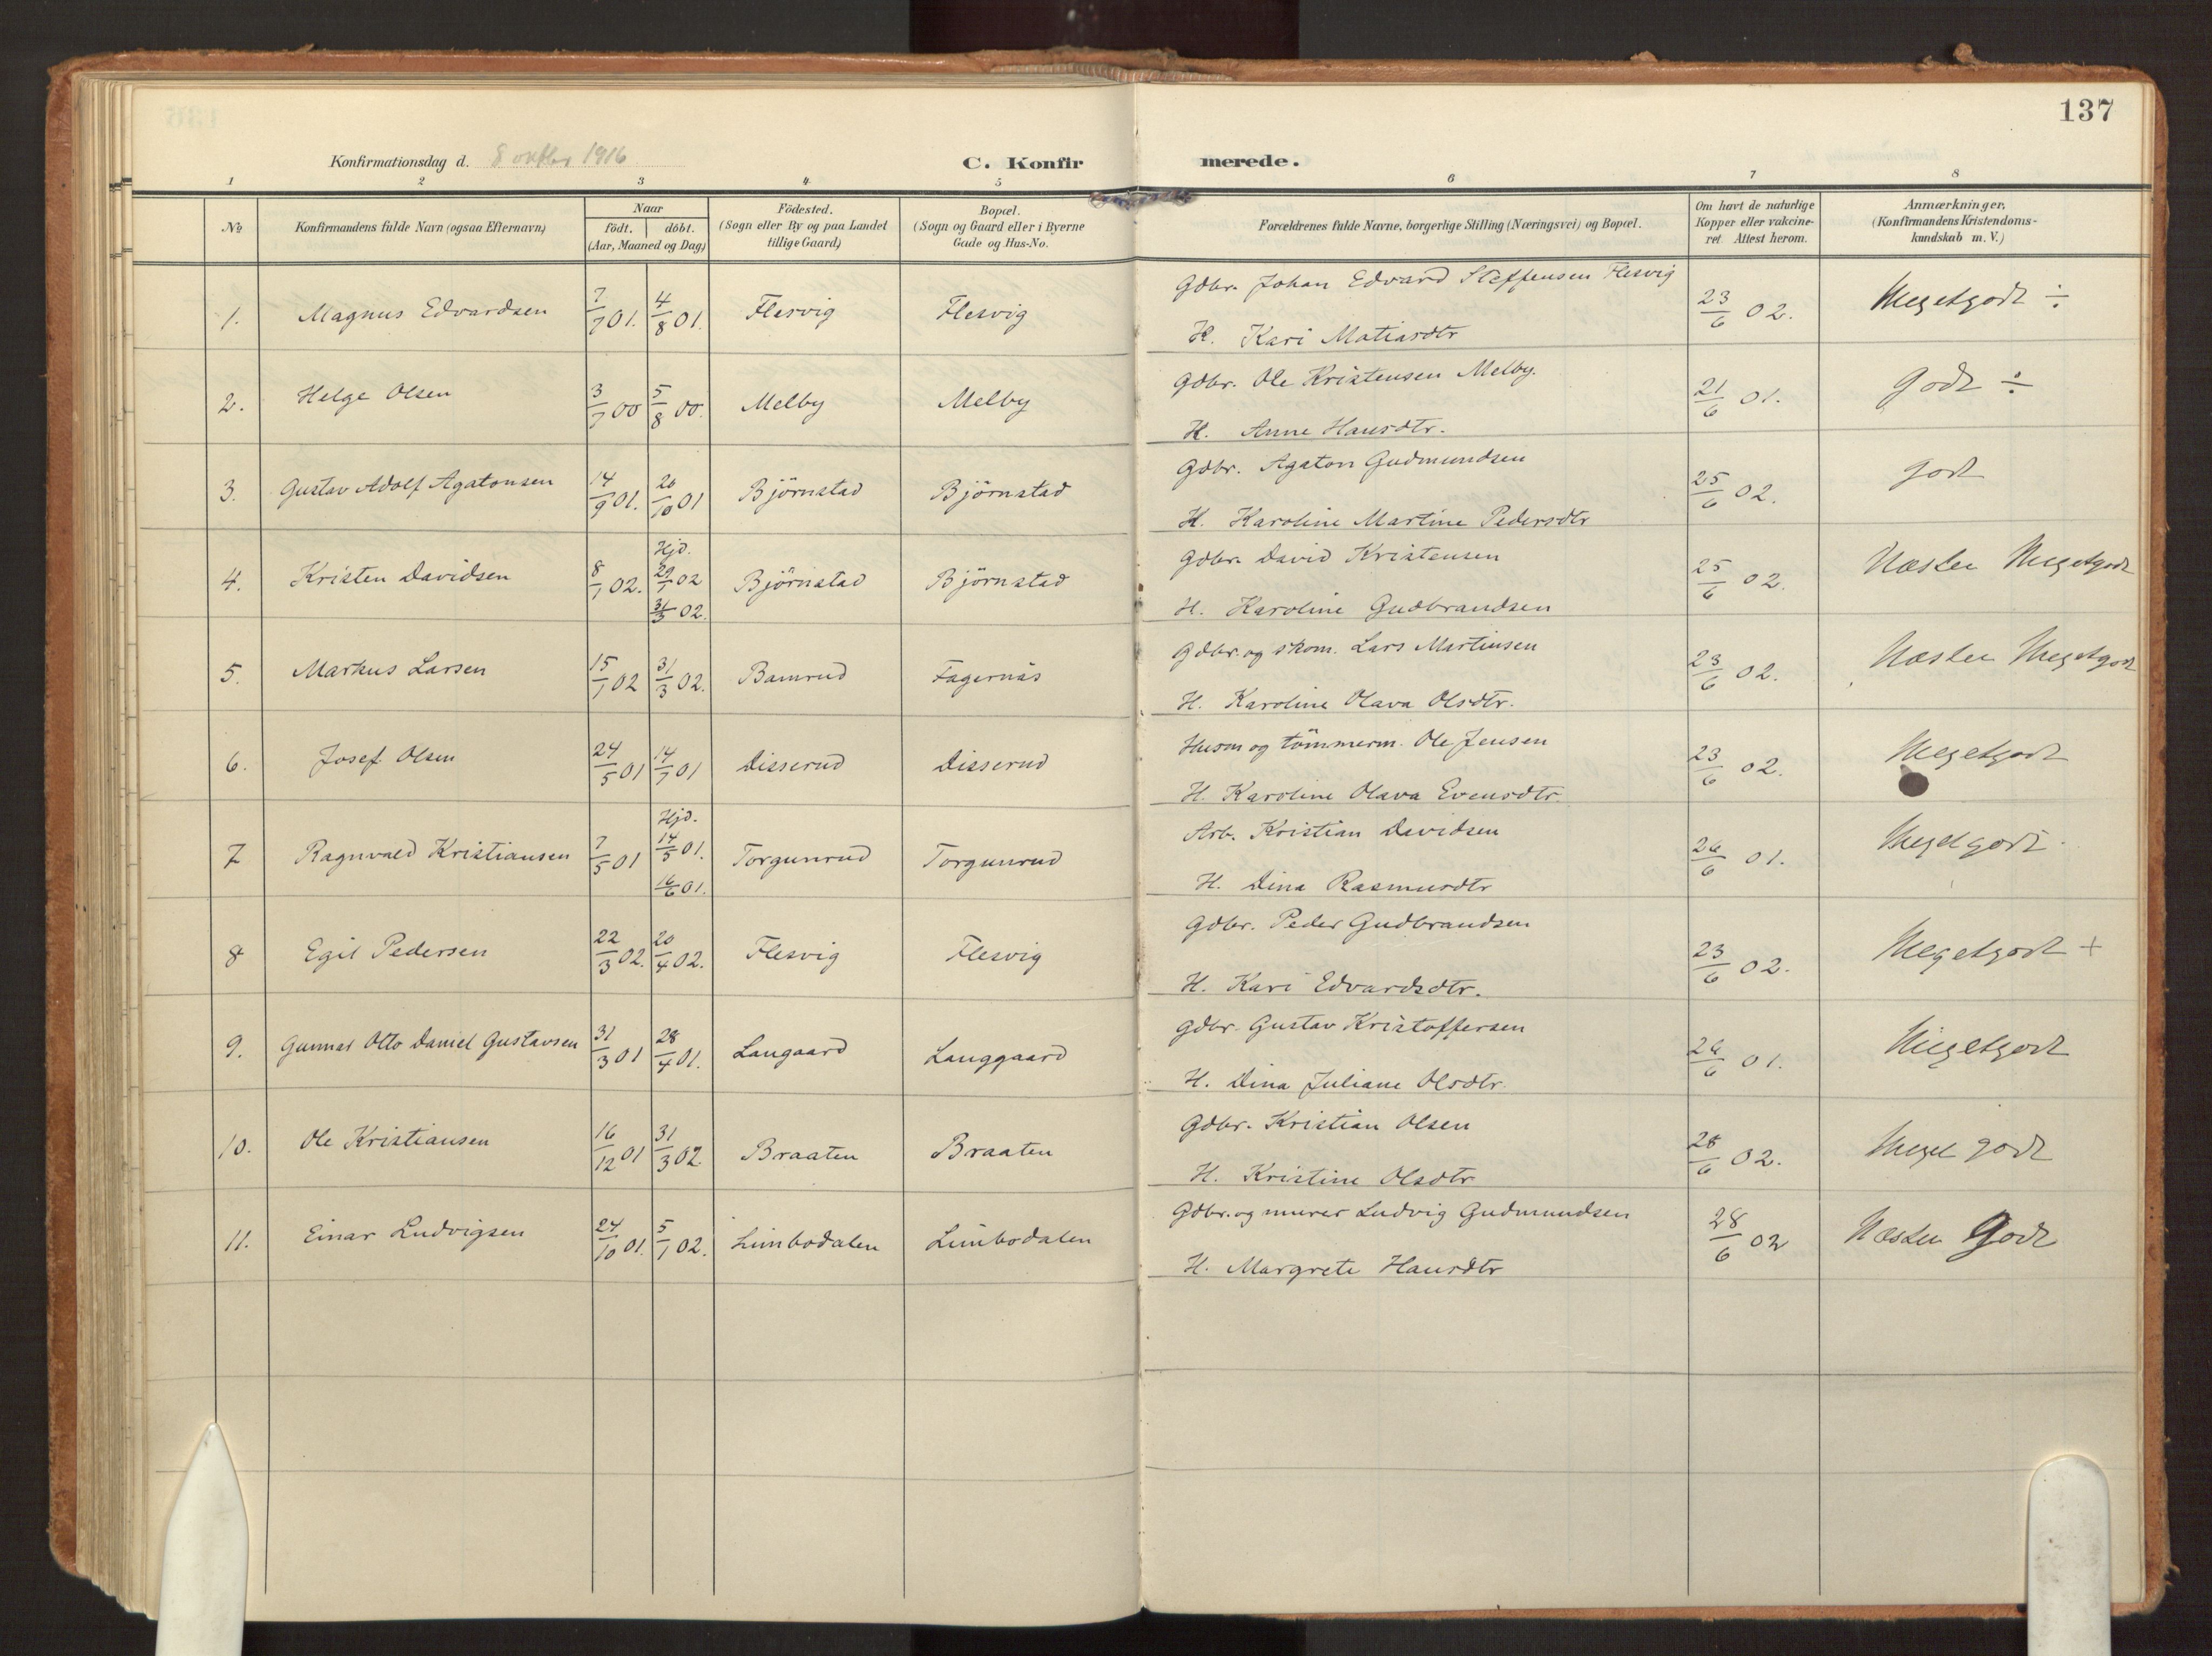 137
Konfirmationsdag d. 8 oktbr 1916
C. Konfirmerede.
1 2 3 4 5 6 7 8
No
Konfirmandens fulde Navn (ogsaa Efternavn)
Naar
födt. döbt.
(Aar, Maaned og Dag)
Födested.
(Sogn eller By og paa Landet
tillige Gaard)
Bopæl.
(Sogn og Gaard eller i Byerne
Gade og Hus-No.
Forældrenes fulde Navne, borgerlige Stilling (Næringsvei) og Bopæl.
Om havt de naturlige
Kopper eller vakcine-
ret. Attest herom.
Anmærkninger,
(Konfirmandens Kristendoms-
kundskab m. V.)
1. Magnus Edvardsen 7/7 01. 4/8 01. Flesvig Flesvig Gdbr. Johan Edvard Steffensen Flesvig 23/6 02. Megetgodt ÷
H. Kari Matiasdtr
2. Helge Olsen 3/7 00 5/8 00. Melby Melby Gdbr. Ole Kristensen Melby. 21/6 01. Godt ÷
H. Anne Hansdtr.
3. Gustav Adolf Agatonsen 14/9 01. 20/10 01 Björnstad Björnstad Gdbr. Agaton Gudmundsen 25/6 02. godt
H. Karoline Martine Pedersdtr
4. Kristen Davidsen 8/1 02. Hjd. 29/1 02 31/3 02. Björnstad Björnstad Gdbr. David Kristensen 25/6 02. Næsten Megetgodt
H. Karoline Gudbrandsen
5. Markus Larsen 15/1 02 31/3 02. Bamrud Fagernäs Gdbr. og skom. Lars Martinsen 23/6 02. Næsten Megetgodt
H. Karoline Olava Olsdtr.
6. Josef Olsen 24/5 01 14/7 01 Disserud Disserud Husm og tömmerm. Ole Jensen 23/6 02. Megetgodt
H. Karoline Olava Evensdtr.
7 Ragnvald Kristiansen 7/5 01 Hjd. 14/5 01. 16/6 01. Torgunrud Torgunrud Arb. Kristian Davidsen 26/6 01. Megetgodt.
H. Dina Rasmusdtr
8 Egil Pedersen 22/3 02. 20/4 02. Flesvig Flesvig Gdbr. Peder Gudbrandsen 23/6 02. Megetgodt +
H. Kari Edvardsdtr.
9. Gunnar Otto Daniel Gustavsen 31/3 01 28/4 01. Langaard Langgaard Gdbr. Gustav Kristoffersen 26/6 01. Megetgodt
H. Dina Juliane Olsdtr.
10. Ole Kristiansen 16/12 01 31/3 02. Braaten Braaten Gdbr. Kristian Olsen 28/6 02. Meget godt
H. Kristine Olsdtr
11. Einar Ludvigsen 24/10 01. 5/1 02. Limbodalen Limbodalen Gdbr. og murer Ludvig Gudmundsen 28/6 02 Næsten Godt
H. Margrete Hansdtr